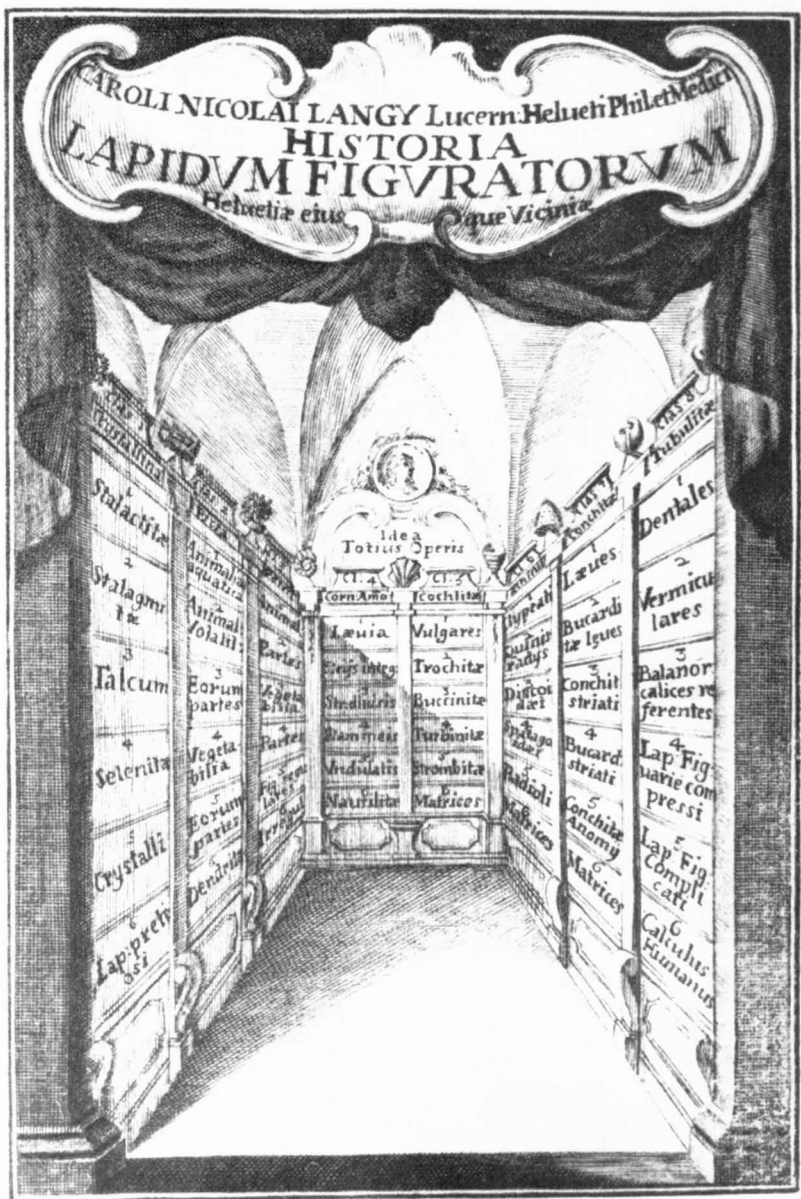 CAROLI NICOLAI LANGY Lucern: Helueti Phil et Medici
HISTORIA
LAPIDVM FIGVRATORVM
Heluetiæ eius que Viciniæ
Clas
1
Stalactitæ
2
Stalagmi
tæ
3
Talcum
4
Selenitæ
5
Crystalli
6
Lap: preti
osi
1
Animalia
aquatica
2
Animal
Volatil:
3
Eorum
partes
4
Vegeta
bilia
5
Eorum
partes
6
Dendritæ
2
Partes
3
Vegeta
bilia
4
Partes
5
6
Idea
Totius Operis
Cl. 4
Corn Amo
1
Læuia
2
3
4
5
Vndulatis
6
Nautilitæ
Cl. 5
Cochlitæ
1
Vulgares
2
Trochitæ
3
Buccinitæ
4
Turbinitæ
5
Strombitæ
6
Matrices
1
Clypeati
2
3
Discoi
dæi
4
5
Radioli
6
Matrices
Clas 7
Conchitæ
1
Læues
2
Bucardi
tæ lęues
3
Conchit
striati
4
Bucard:
striati
5
Conchitæ
Anomij
6
Matrices
Clas 8
Tubulitæ
1
Dentales
2
Vermicu
lares
3
Balanor
calices re
ferentes
4
Lap: Fig
uarie com
pressi
5
Lap: Fig:
Compli
cati
6
Calculus
Humanus